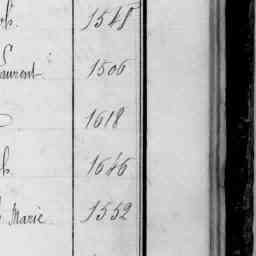 1548
Laurent 1506
1618
1646
Marie 1552